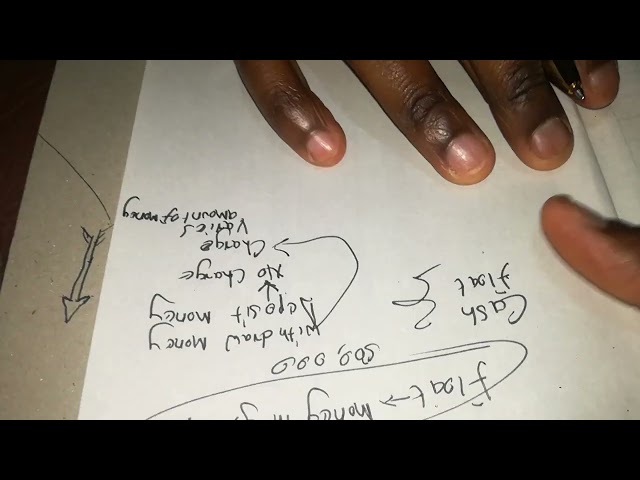 Float → Money in
500,000
Cash
Float
Withdraw Money
Deposit Money
No Change
Change
Varies
amount of money